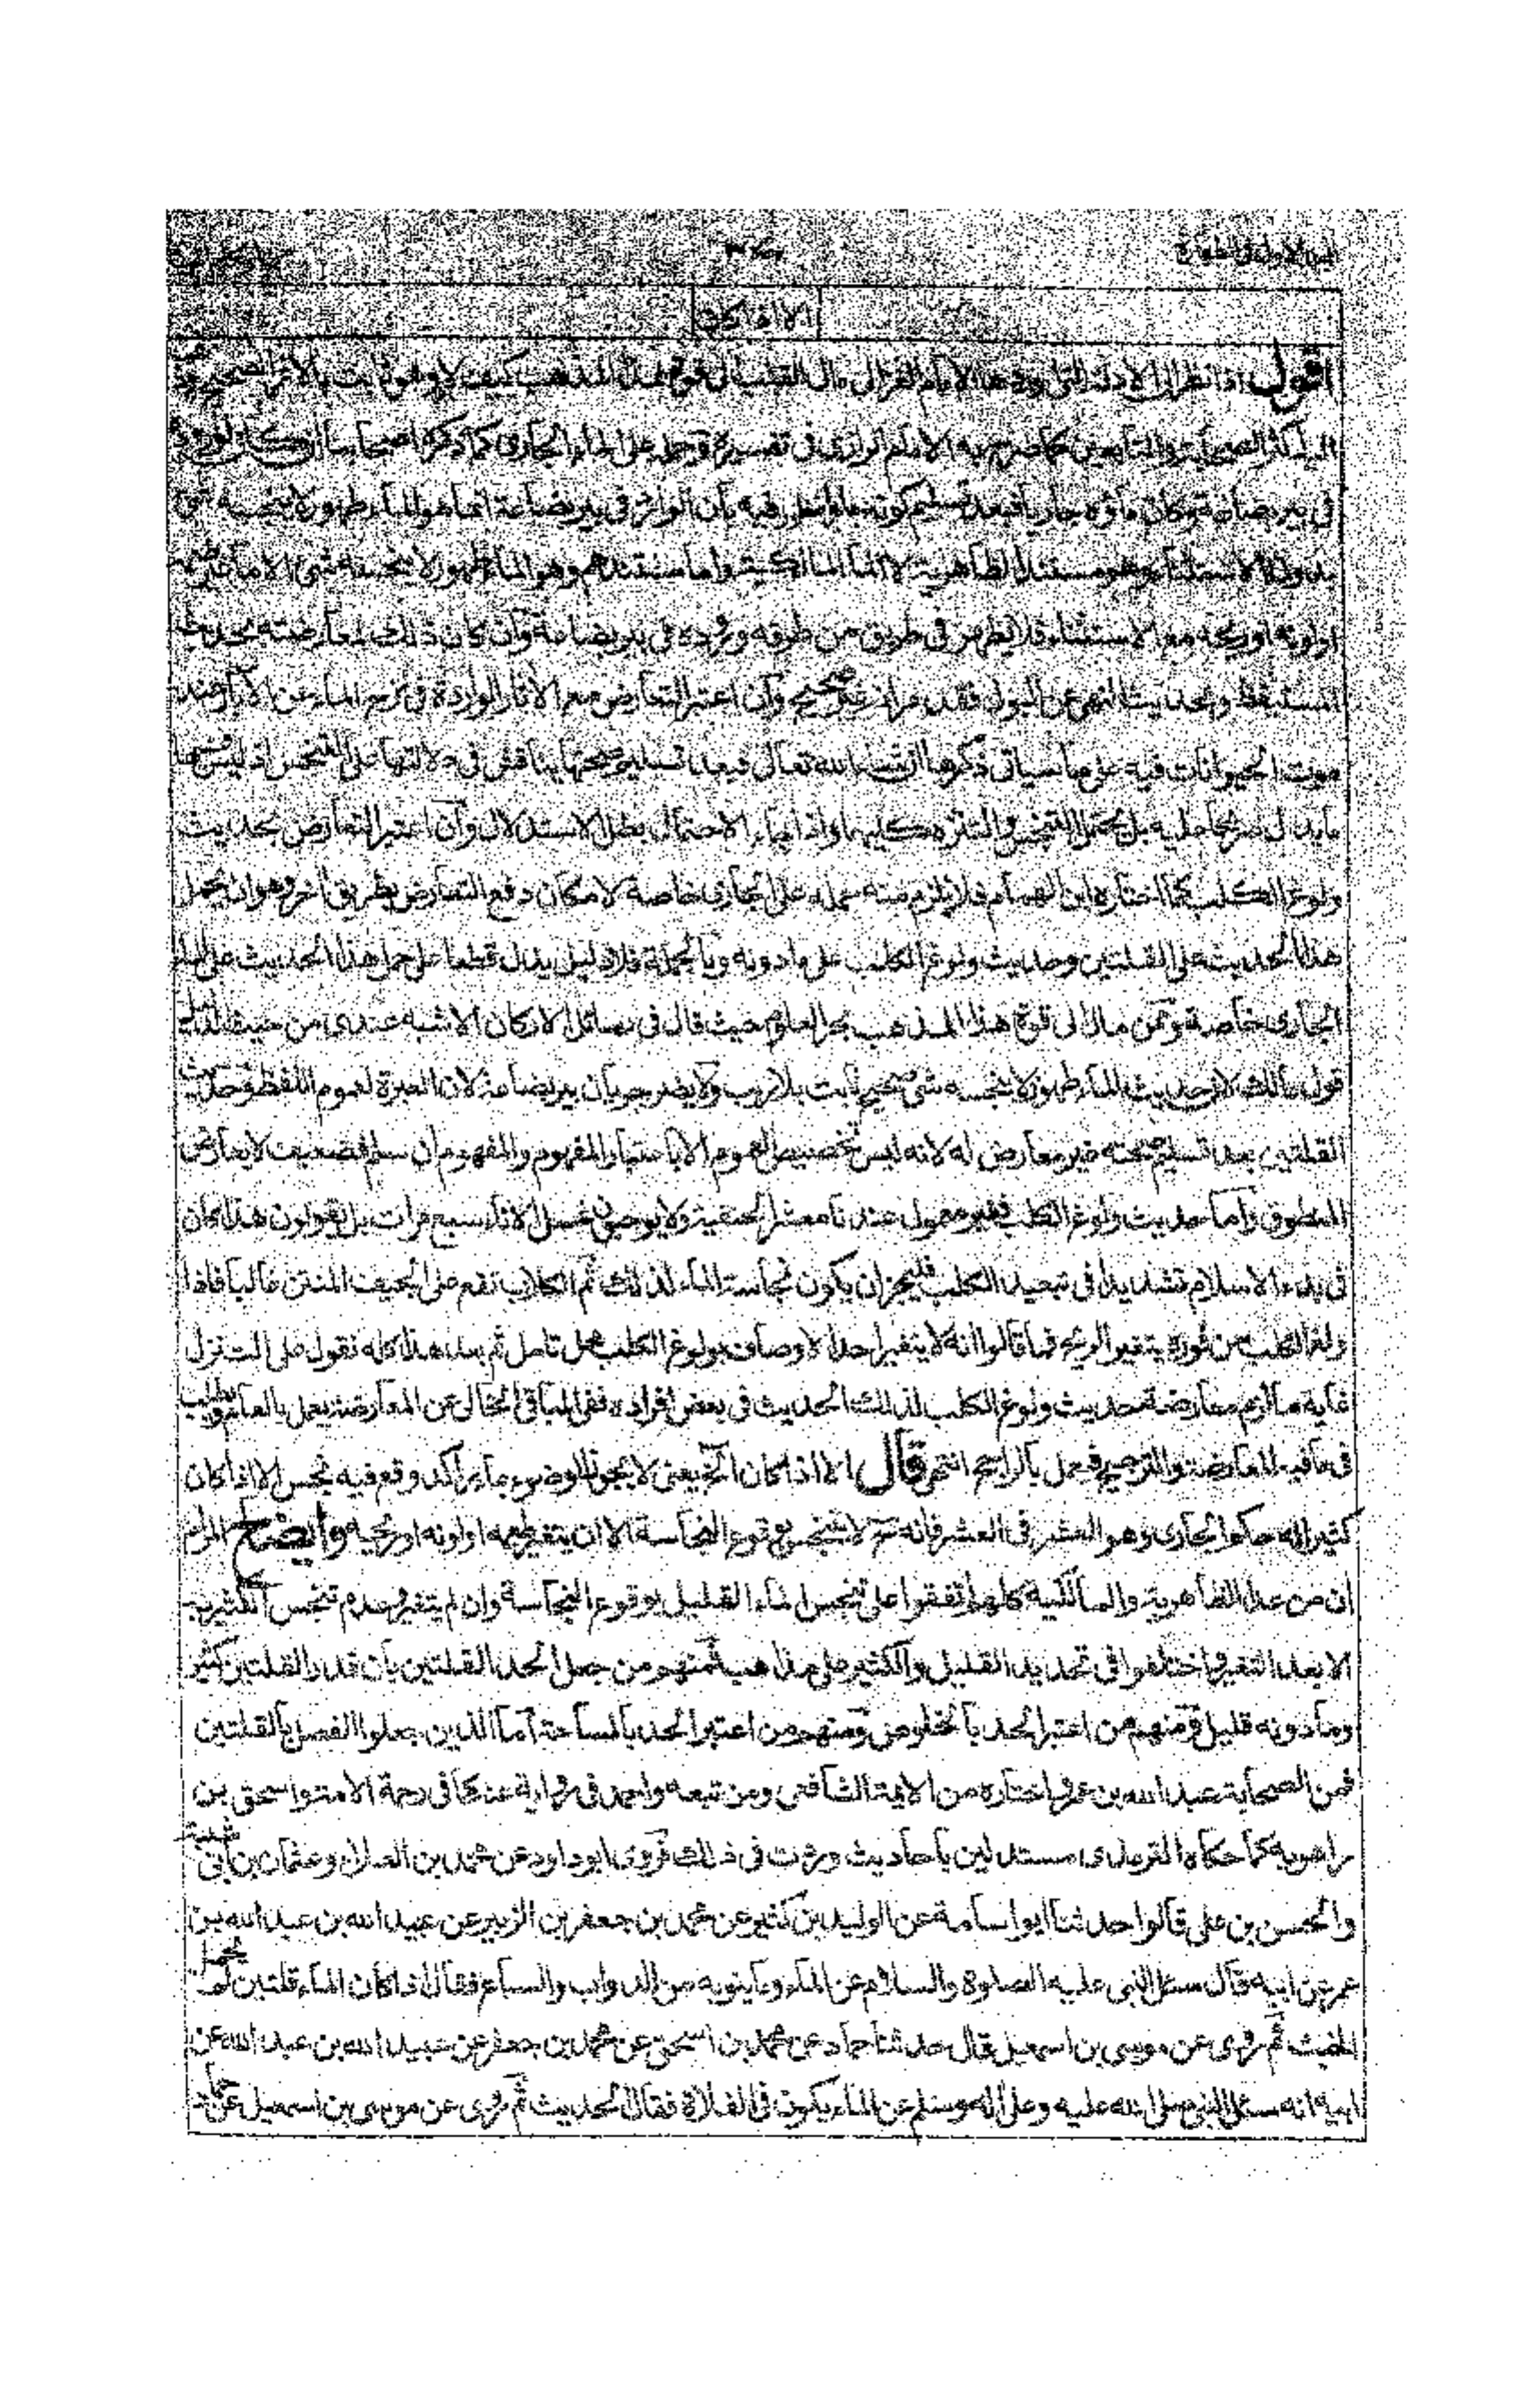 الا اذا كان
اقول اذا نظر الى الادلة التى اوردها الامام الغزالى مال القلب الى قوة هذا المذهب كيف لا وهو ثابت بالاثر الصحيح
اكثر الصحابة والتابعين كما صرح به الامام الرازى فى تفسيره وحمله على الماء الجارى كما ذكر اصحابنا
فى بير بضاعة وكان ماؤه جاريا فبعد تسليم كونه جاريا نظر فيه بان الوارد فى بير بضاعة انما هو الماء طهور لا ينجسه شئ
بدون الاستثناء وهو مستند الظاهرية لا المالكية واما مستندهم وهو الماء طهور لا ينجسه شئ الا ما غير طعمه
او لونه او ريحه مع الاستثناء فلم يظهر فى طريق من طرقه وروده فى بير بضاعة وان كان ذلك لمعارضته بحديث
المستيقظ وبحديث النهى عن البول فقد مر انه غير صحيح وان اعتبر التعارض مع الاثار الواردة فى نزح الماء عن الآبار عند
موت الحيوانات فيه على ما سيأتى ذكرها ان شاء الله تعالى فبعد تسليم صحتها يناقش فى دلالتها على التنجس اذ ليس فيها
ما يدل صريحا عليه بل يحتمل التنجس والتنزه كليهما واذا جاء الاحتمال بطل الاستدلال وان اعتبر التعارض بحديث
ولوغ الكلب كما اختاره ابن الهمام فلا يلزم منه حمله على الجارى خاصة لامكان دفع التعارض بطريق اخر وهو ان يحمل
هذا الحديث على القلتين وحديث ولوغ الكلب على ما دونه وبالجملة فلا دليل يدل قطعا على حمل هذا الحديث على الماء
الجارى خاصة وممن مال الى قوة هذا المذهب بحر العلوم حيث قال فى رسائل الاركان الاشبه عندى من حيث الدليل
قول مالك لان حديث الماء طهور لا ينجسه شئ صحيح ثابت بلا ريب ولا يضر جريان بير بضاعة لان العبرة لعموم اللفظ وحديث
القلتين بعد تسليم صحته غير معارض له لانه ليس تخصيص العموم الا باعتبار المفهوم والمفهوم ان سلم فضعيف لا يعارض
المنطوق واما حديث ولوغ الكلب فغير معمول عندنا معشر الحنفية ولا يوجبون غسل الاناء سبع مرات بل يقولون هذا كان
فى بدء الاسلام تشديدا فى تبعيد الكلب فليجز ان يكون نجاسة الماء لذلك ثم الكلاب تقع على الجيف المنتن غالبا فاذا
ولغ الكلب من فوره يتغير الريح فما قالوا انه لا يتغير احد الاوصاف بولوغ الكلب محل تامل ثم بعد هذا كله نقول على التنزل
غاية ما لزم معارضة حديث ولوغ الكلب لذلك الحديث فى بعض افراده ففى الباقى الخالى عن المعارضة يعمل بالعام ويطلب
فى ما فيه المعارضة والترجيح فيعمل بالراجح انتهى قال الا اذا كان الخ يعنى لا يجوز الوضوء بماء راكد وقع فيه نجس الا اذا كان
كثيرا له حكم الجارى وهو العشر فى العشر فانه ح لا يتنجس بوقوع النجاسة الا ان يتغير طعمه او لونه او ريحه وايضاح المرام
ان من عدا الظاهرية والمالكية كلهم اتفقوا على تنجس الماء القليل بوقوع النجاسة وان لم يتغير وعدم تنجس الكثير به
الا بعد التغير واختلفوا فى تحديد القليل والكثير على مذاهب فمنهم من جعل الحد القلتين بان قدر القلتين كثير
وما دونه قليل ومنهم من اعتبر الحد بالخلوص ومنهم من اعتبر الحد بالمساحة اما الذين جعلوا الفصل بالقلتين
فمن الصحابة عبد الله بن عمر واختاره من الائمة الشافعى ومن تبعه واحمد فى رواية عنه كما فى رحمة الامة واسحق بن
راهويه كما حكاه الترمذى مستدلين باحاديث وردت فى ذلك فروى ابو داود عن محمد بن العلاء وعثمان بن ابى شيبة
والحسن بن على قالوا حدثنا ابو اسامة عن الوليد بن كثير عن محمد بن جعفر بن الزبير عن عبيد الله بن عبد الله بن
عمر عن ابيه قال سئل النبى عليه الصلوة والسلام عن الماء وما ينوبه من الدواب والسباع فقال اذا كان الماء قلتين لم يحمل
الخبث ثم روى عن موسى بن اسمعيل قال حدثنا حماد عن محمد بن اسحق عن محمد بن جعفر عن عبيد الله بن عبد الله عن
ابيه انه سئل النبى صلى الله عليه وعلى آله وسلم عن الماء يكون فى الفلاة فقال الحديث ثم روى عن موسى بن اسمعيل عن حماد